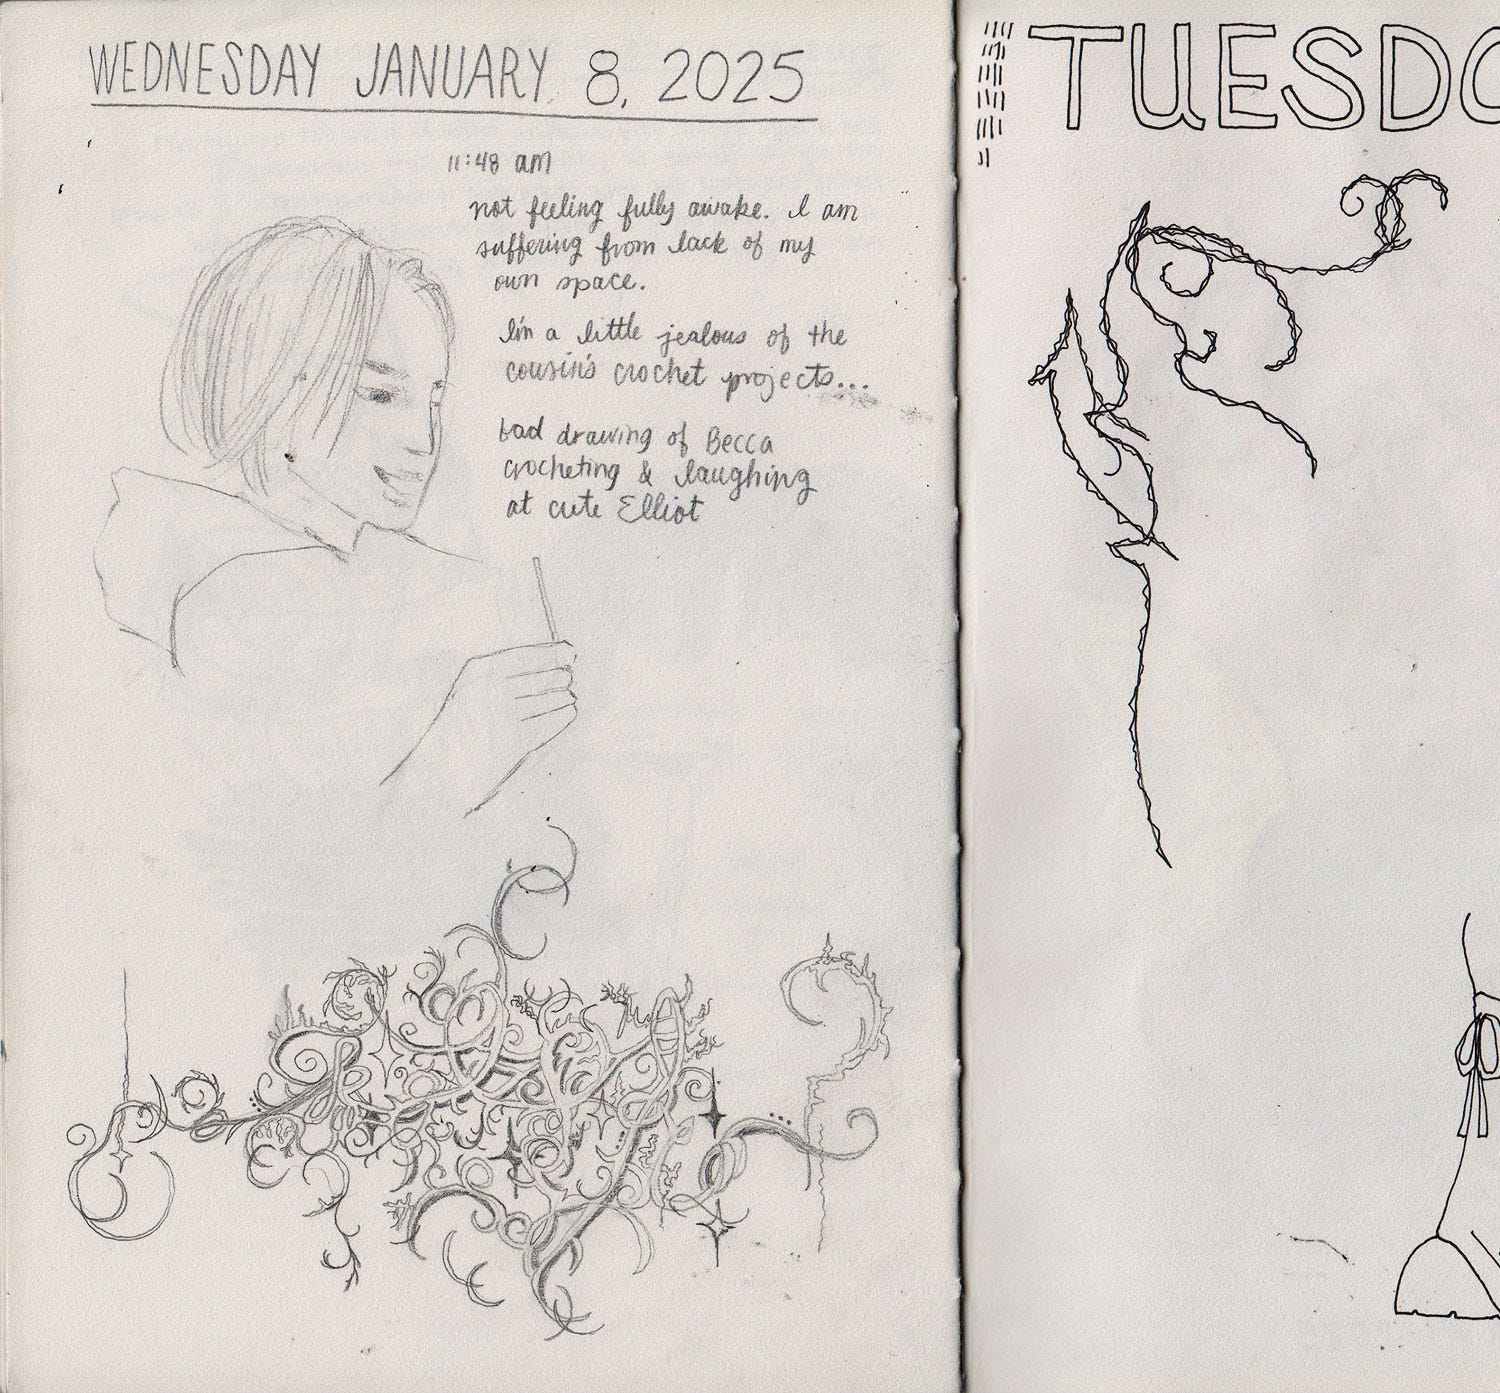 WEDNESDAY JANUARY 8, 2025
11:48 am
not feeling fully awake. I am
suffering from lack of my
own space.
I'm a little jealous of the
cousin's crochet projects...
bad drawing of Becca
crocheting & laughing
at cute Elliot
TUESDA